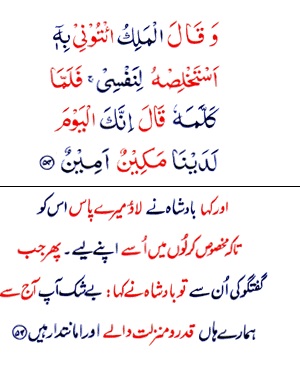 وَقَالَ الْمَلِكُ ائْتُوْنِیْ بِهٖۤ
اَسْتَخْلِصْهُ لِنَفْسِیْ ۚ فَلَمَّا
كَلَّمَهٗ قَالَ اِنَّكَ الْیَوْمَ
لَدَیْنَا مَكِیْنٌ اَمِیْنٌ ﴿۵۴﴾
اور کہا بادشاہ نے لاؤ میرے پاس اس کو
تاکہ مخصوص کرلوں میں اُسے اپنے لیے۔ پھر جب
گفتگو کی اُن سے تو بادشاہ نے کہا: بے شک آپ آج سے
ہمارے ہاں قدر و منزلت والے اور امانتدار ہیں ﴿۵۴﴾